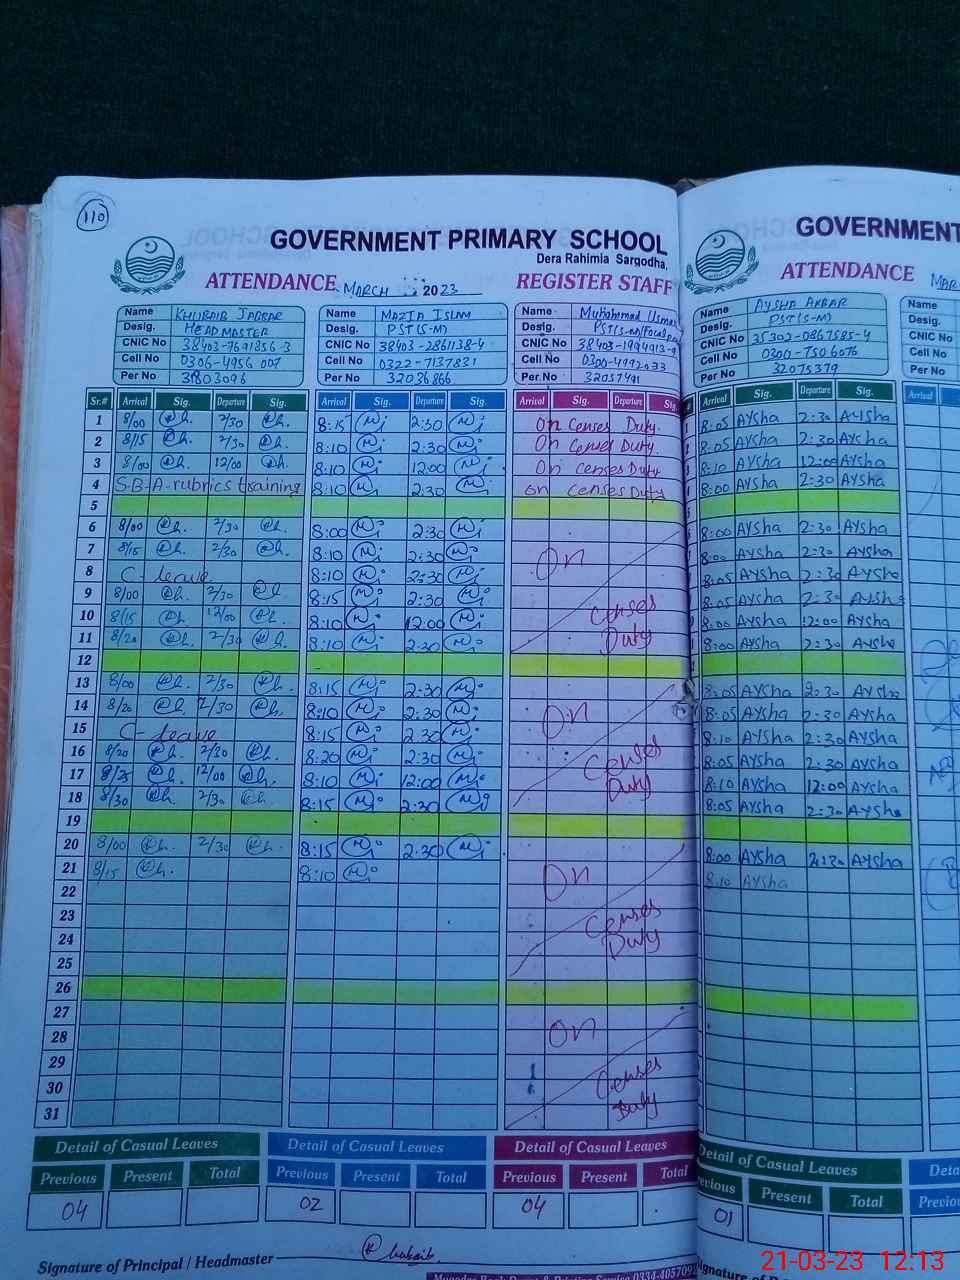 110
GOVERNMENT PRIMARY SCHOOL
Dera Rahimia Sargodha.
ATTENDANCE MARCH 2023 REGISTER STAFF
Name KHUBAIB JABBAR
Desig. HEADMASTER
CNIC No 38403-7691856-3
Cell No 0306-4956 007
Per No 31803096
Name NAZIA ISLAM
Desig. PST(S-M)
CNIC No 38403-2861138-4
Cell No 0322-7137831
Per No 32036866
Name Muhammad Usman
Desig. PST(S-M)/Focal
CNIC No 38403-1994913-9
Cell No 0300-4992033
Per No
Sr.# Arrival Sig. Departure Sig. Arrival Sig. Departure Sig. Arrival Sig. Departure Sig.
1 8/00 2/30 8:15 2:30 On Censes Duty.
2 8/15 2/30 8:10 2:30 On Censes Duty.
3 8/00 12/00 8:10 12:00 On censes Duty
4 S-B-A-rubrics training 8:10 2:30 on censes Duty
5
6 8/00 2/30 8:00 2:30
7 8/15 2/30 8:10 2:30 On
8 C-leave 8:10 2:30
9 8/00 2/30 8:15 2:30 Censes
10 8/15 12/00 8:10 12:00 Duty
11 8/20 2/30 8:10 2:30
12
13 8/00 2/30 8:15 2:30
14 8/20 2/30 8:10 2:30 On
15 C-leave 8:15 2:30
16 8/20 2/30 8:20 2:30 Censes
17 8/25 12/00 8:10 12:00 Duty
18 8/30 2/30 8:15 2:30
19
20 8/00 2/30 8:15 2:30
21 8/15 8:10 On
22
23 Censes
24 Duty
25
26
27
28 On
29
30 Censes
31 Duty
Detail of Casual Leaves Detail of Casual Leaves Detail of Casual Leaves
Previous Present Total Previous Present Total Previous Present Total
04 02 04
Signature of Principal / Headmaster Khubaib
GOVERNMENT
ATTENDANCE MAR
Name AYSHA AKBAR
Desig. PST(S-M)
CNIC No 35302-0867585-4
Cell No 0300-7506076
Per No 32075379
Name
Desig.
CNIC No
Cell No
Per No
Arrival Sig. Departure Sig. Arrival
8:05 AYSha 2:30 AYSha
8:05 AYSha 2:30 AYSha
8:10 AYSha 12:00 AYSha
8:00 AYSha 2:30 AYSha
8:00 AYSha 2:30 AYSha
8:00 AYSha 2:30 AYSha
8:05 AYSha 2:30 AYSha
8:05 AYSha 2:30 AYSha
8:00 AYSha 12:00 AYSha
8:00 AYSha 2:30 AYSha
8:05 AYSha 2:30 AYSha
8:05 AYSha 2:30 AYSha
8:10 AYSha 2:30 AYSha
8:05 AYSha 2:30 AYSha
8:10 AYSha 12:00 AYSha
8:05 AYSha 2:30 AYSha
8:00 AYSha 2:30 AYSha
8:10 AYSha
Detail of Casual Leaves
Present Total
01
21-03-23 12:13